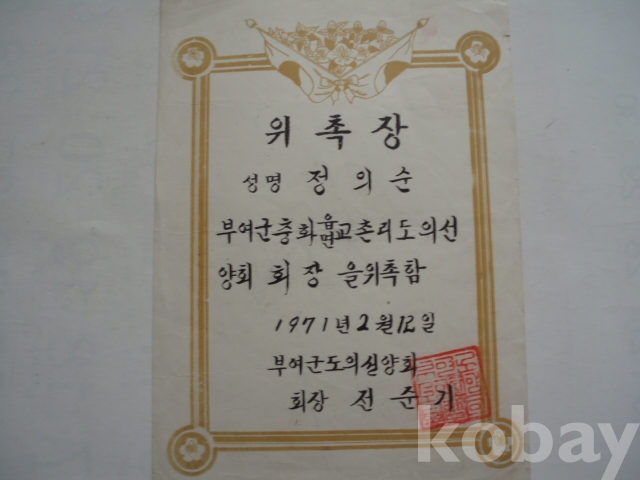 위촉장
성명 정의순
부여군충화읍면교촌리도의선
양회 회장 을위촉함
1971년 2월 12일
부여군도의실양회
회장 전준기
kobay